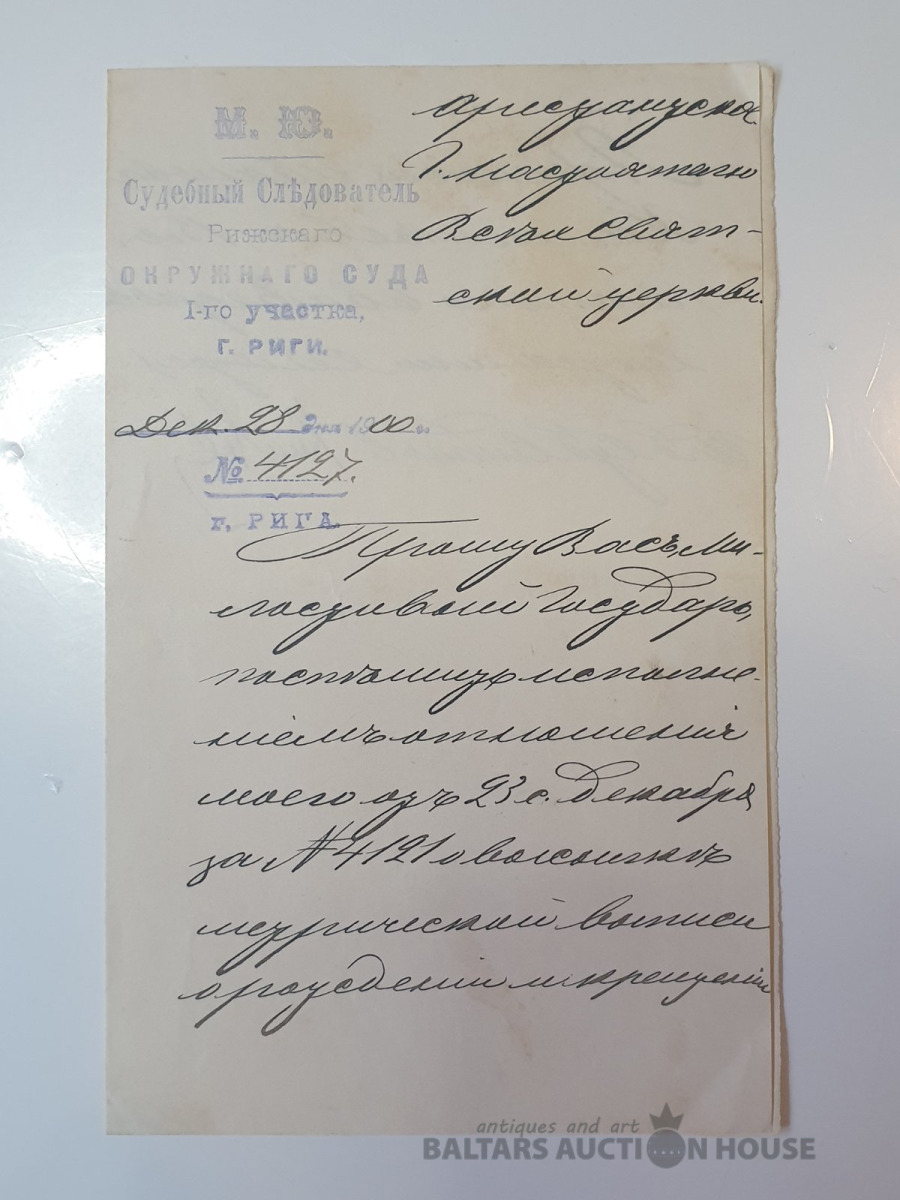 М. Ю.
Судебный Слѣдователь
Рижскаго
ОКРУЖНАГО СУДА
I-го участка,
Г. РИГИ.
Дек. 28 дня 1900 г.
№ 4127.
г. РИГА.
Арестантское
Г. Настоятелю
Всѣхсвят-
ской церкви.
Прошу Васъ, Ми-
лостивый Государь,
поспѣшить исполне-
ніемъ отношенія
моего отъ 23 с. Декабря
за № 4121 о высылкѣ
метрической выписи
о рожденіи и крещеніи
antiques and art
BALTARS AUCTION HOUSE